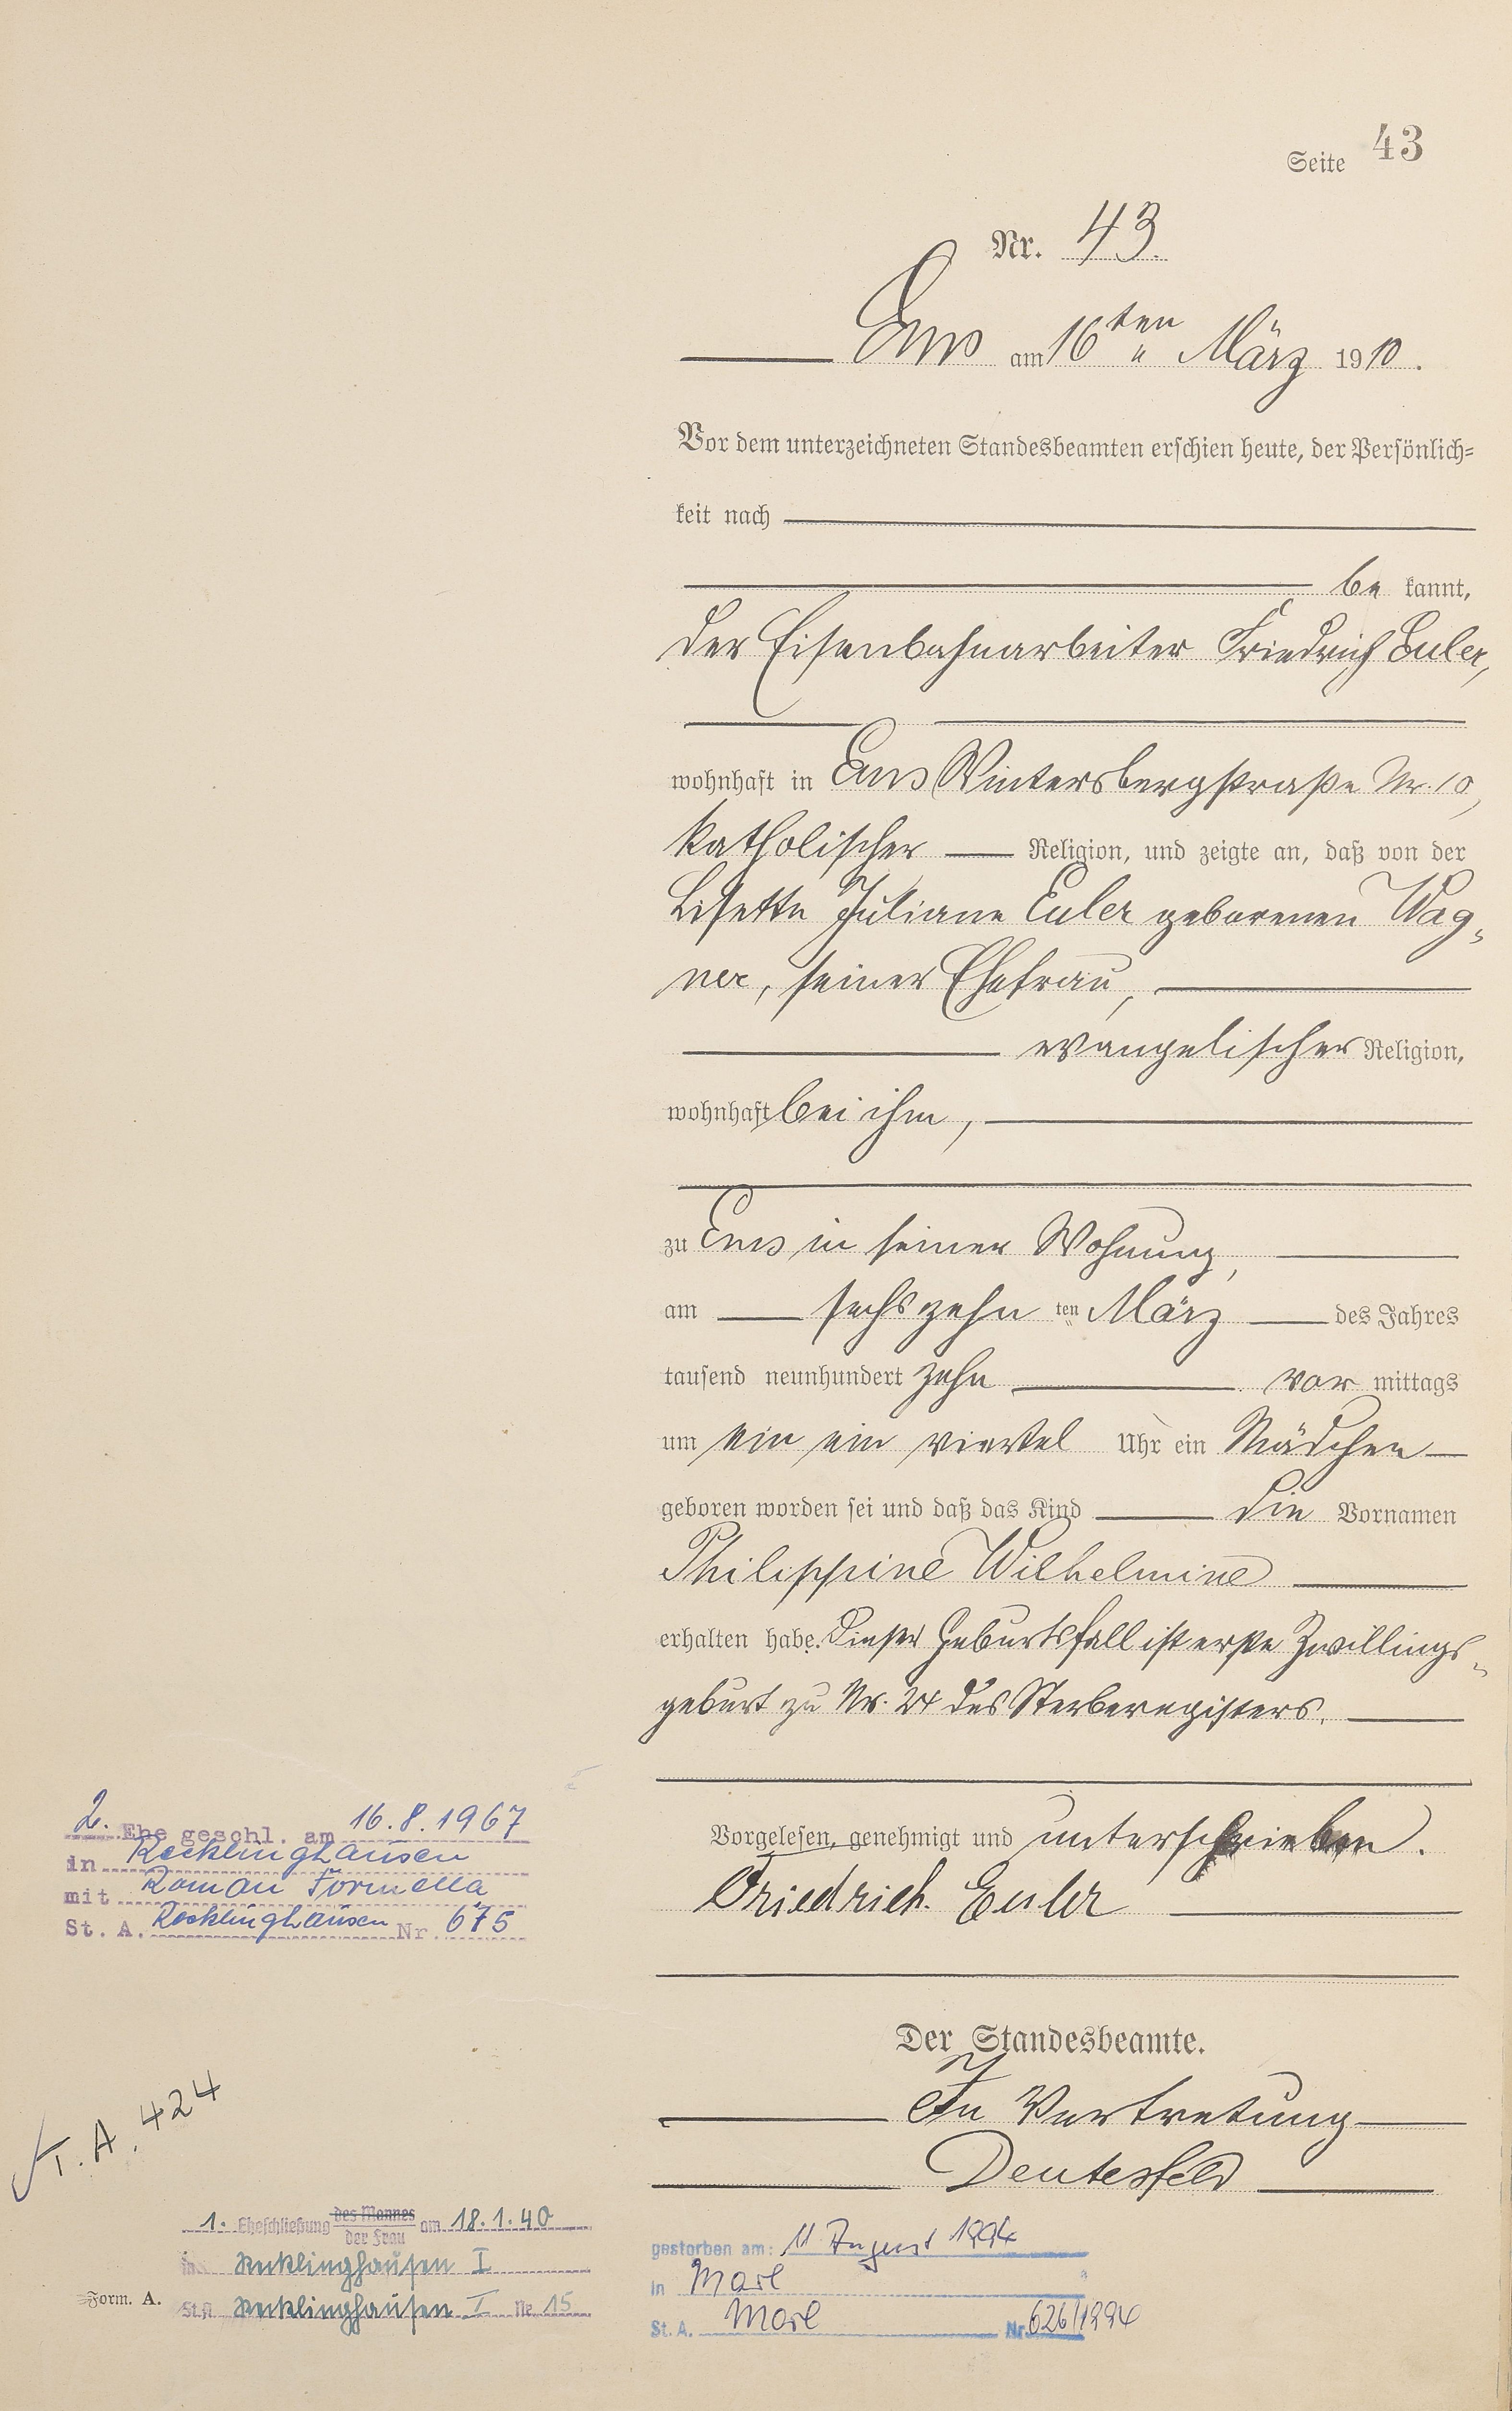 Seite 43
Nr. 43.
Ems am 16ten März 1910.
Vor dem unterzeichneten Standesbeamten erschien heute, der Persönlich=
keit nach
be kannt,
der Eisenbahnarbeiter Friedrich Euler,
wohnhaft in Ems Wintersbergstraße Nr. 10,
katholischer Religion, und zeigte an, daß von der
Lisette Juliane Euler geborenen Wag-
ner, seiner Ehefrau,
evangelischer Religion,
wohnhaft bei ihm,
zu Ems in seiner Wohnung,
am sechszehn ten März des Jahres
tausend neunhundert zehn vor mittags
um ein ein viertel Uhr ein Mädchen
geboren worden sei und daß das Kind die Vornamen
Philippine Wilhelmine
erhalten habe. Dieser Geburtsfall ist erste Zwillings-
geburt zu Nr. 24 des Sterberegisters.
Vorgelesen, genehmigt und unterschrieben.
Friedrich Euler
Der Standesbeamte.
In Vertretung
Deutesfeld
2. Ehe geschl. am 16.8.1967
in Recklinghausen
mit Roman Formella
St. A. Recklinghausen Nr. 675
T. A. 424
1. Eheschließung des Mannes der Frau am 18.1.40
in Recklinghausen I
Form. A. St.A Recklinghausen I Nr. 15
gestorben am: 11 August 1994
in Marl
St. A. Marl Nr. 626/1994